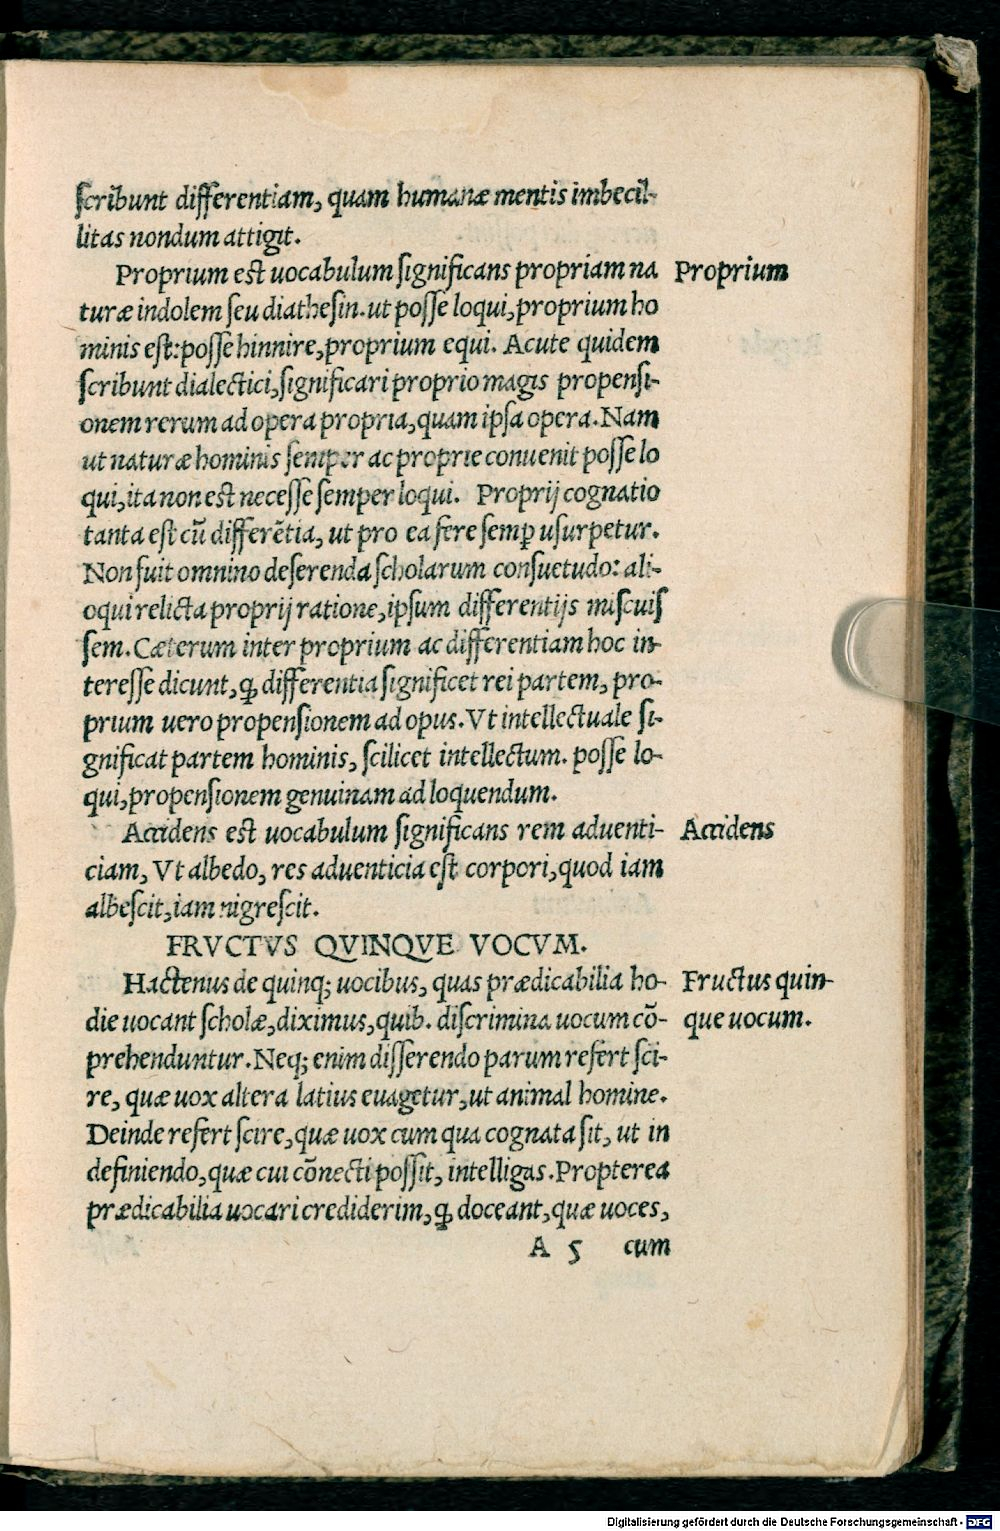 scribunt differentiam, quam humanæ mentis imbecil-
litas nondum attigit.
Proprium est uocabulum significans propriam na
turæ indolem seu diathesin. ut posse loqui, proprium ho
minis est: posse hinnire, proprium equi. Acute quidem
scribunt dialectici, significari proprio magis propensi-
onem rerum ad opera propria, quam ipsa opera. Nam
ut naturæ hominis semper ac proprie conuenit posse lo
qui, ita non est necesse semper loqui. Proprij cognatio
tanta est cū differētia, ut pro ea fere semꝑ usurpetur.
Non fuit omnino deserenda scholarum consuetudo: ali-
oqui relicta proprij ratione, ipsum differentijs miscuis
sem. Cæterum inter proprium ac differentiam hoc in-
teresse dicunt, ꝙ differentia significet rei partem, pro-
prium uero propensionem ad opus. Vt intellectuale si-
gnificat partem hominis, scilicet intellectum. posse lo-
qui, propensionem genuinam ad loquendum.
Accidens est uocabulum significans rem aduenti-
ciam, Vt albedo, res aduenticia est corpori, quod iam
albescit, iam nigrescit.
FRVCTVS QVINQVE VOCVM.
Hactenus de quinq; uocibus, quas prædicabilia ho-
die uocant scholæ, diximus, quib. discrimina uocum cō-
prehenduntur. Neq; enim disserendo parum refert sci-
re, quæ uox altera latius euagetur, ut animal homine.
Deinde refert scire, quæ uox cum qua cognata sit, ut in
definiendo, quæ cui cōnecti possit, intelligas. Propterea
prædicabilia uocari crediderim, ꝙ doceant, quæ uoces,
A 5 cum
Proprium
Accidens
Fructus quin-
que uocum.
Digitalisierung gefördert durch die Deutsche Forschungsgemeinschaft - DFG